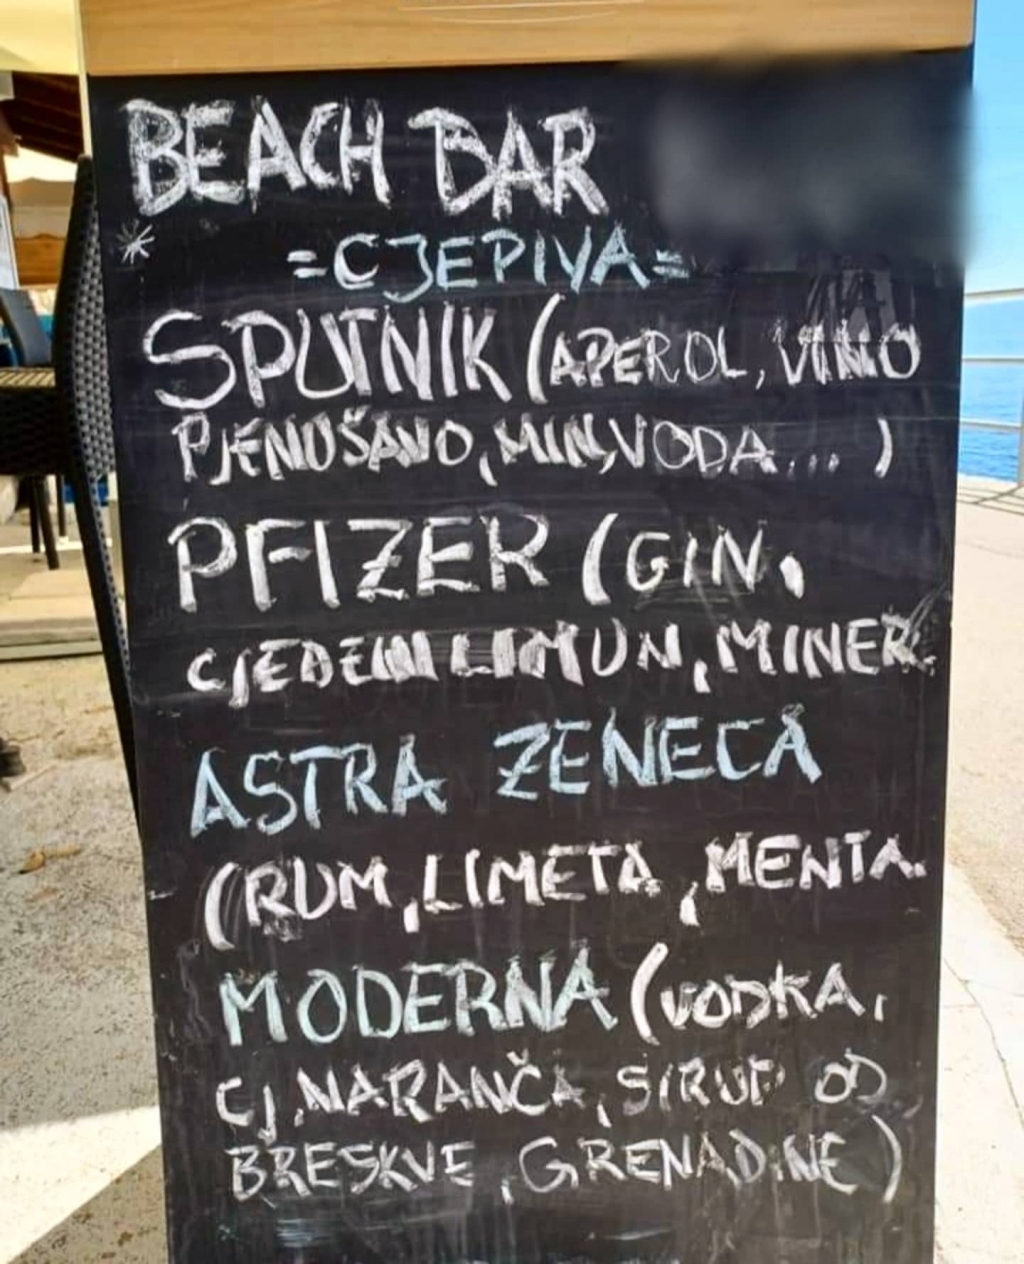 BEACH BAR
* =CJEPIVA=
SPUTNIK (APEROL, VINO
PJENUŠAVO, MIN, VODA... )
PFIZER (GIN,
CJEĐENI LIMUN, MINER.
ASTRA ZENECA
(RUM, LIMETA, MENTA.
MODERNA (VODKA,
CJ, NARANČA, SIRUP OD
BRESKVE, GRENADINE)